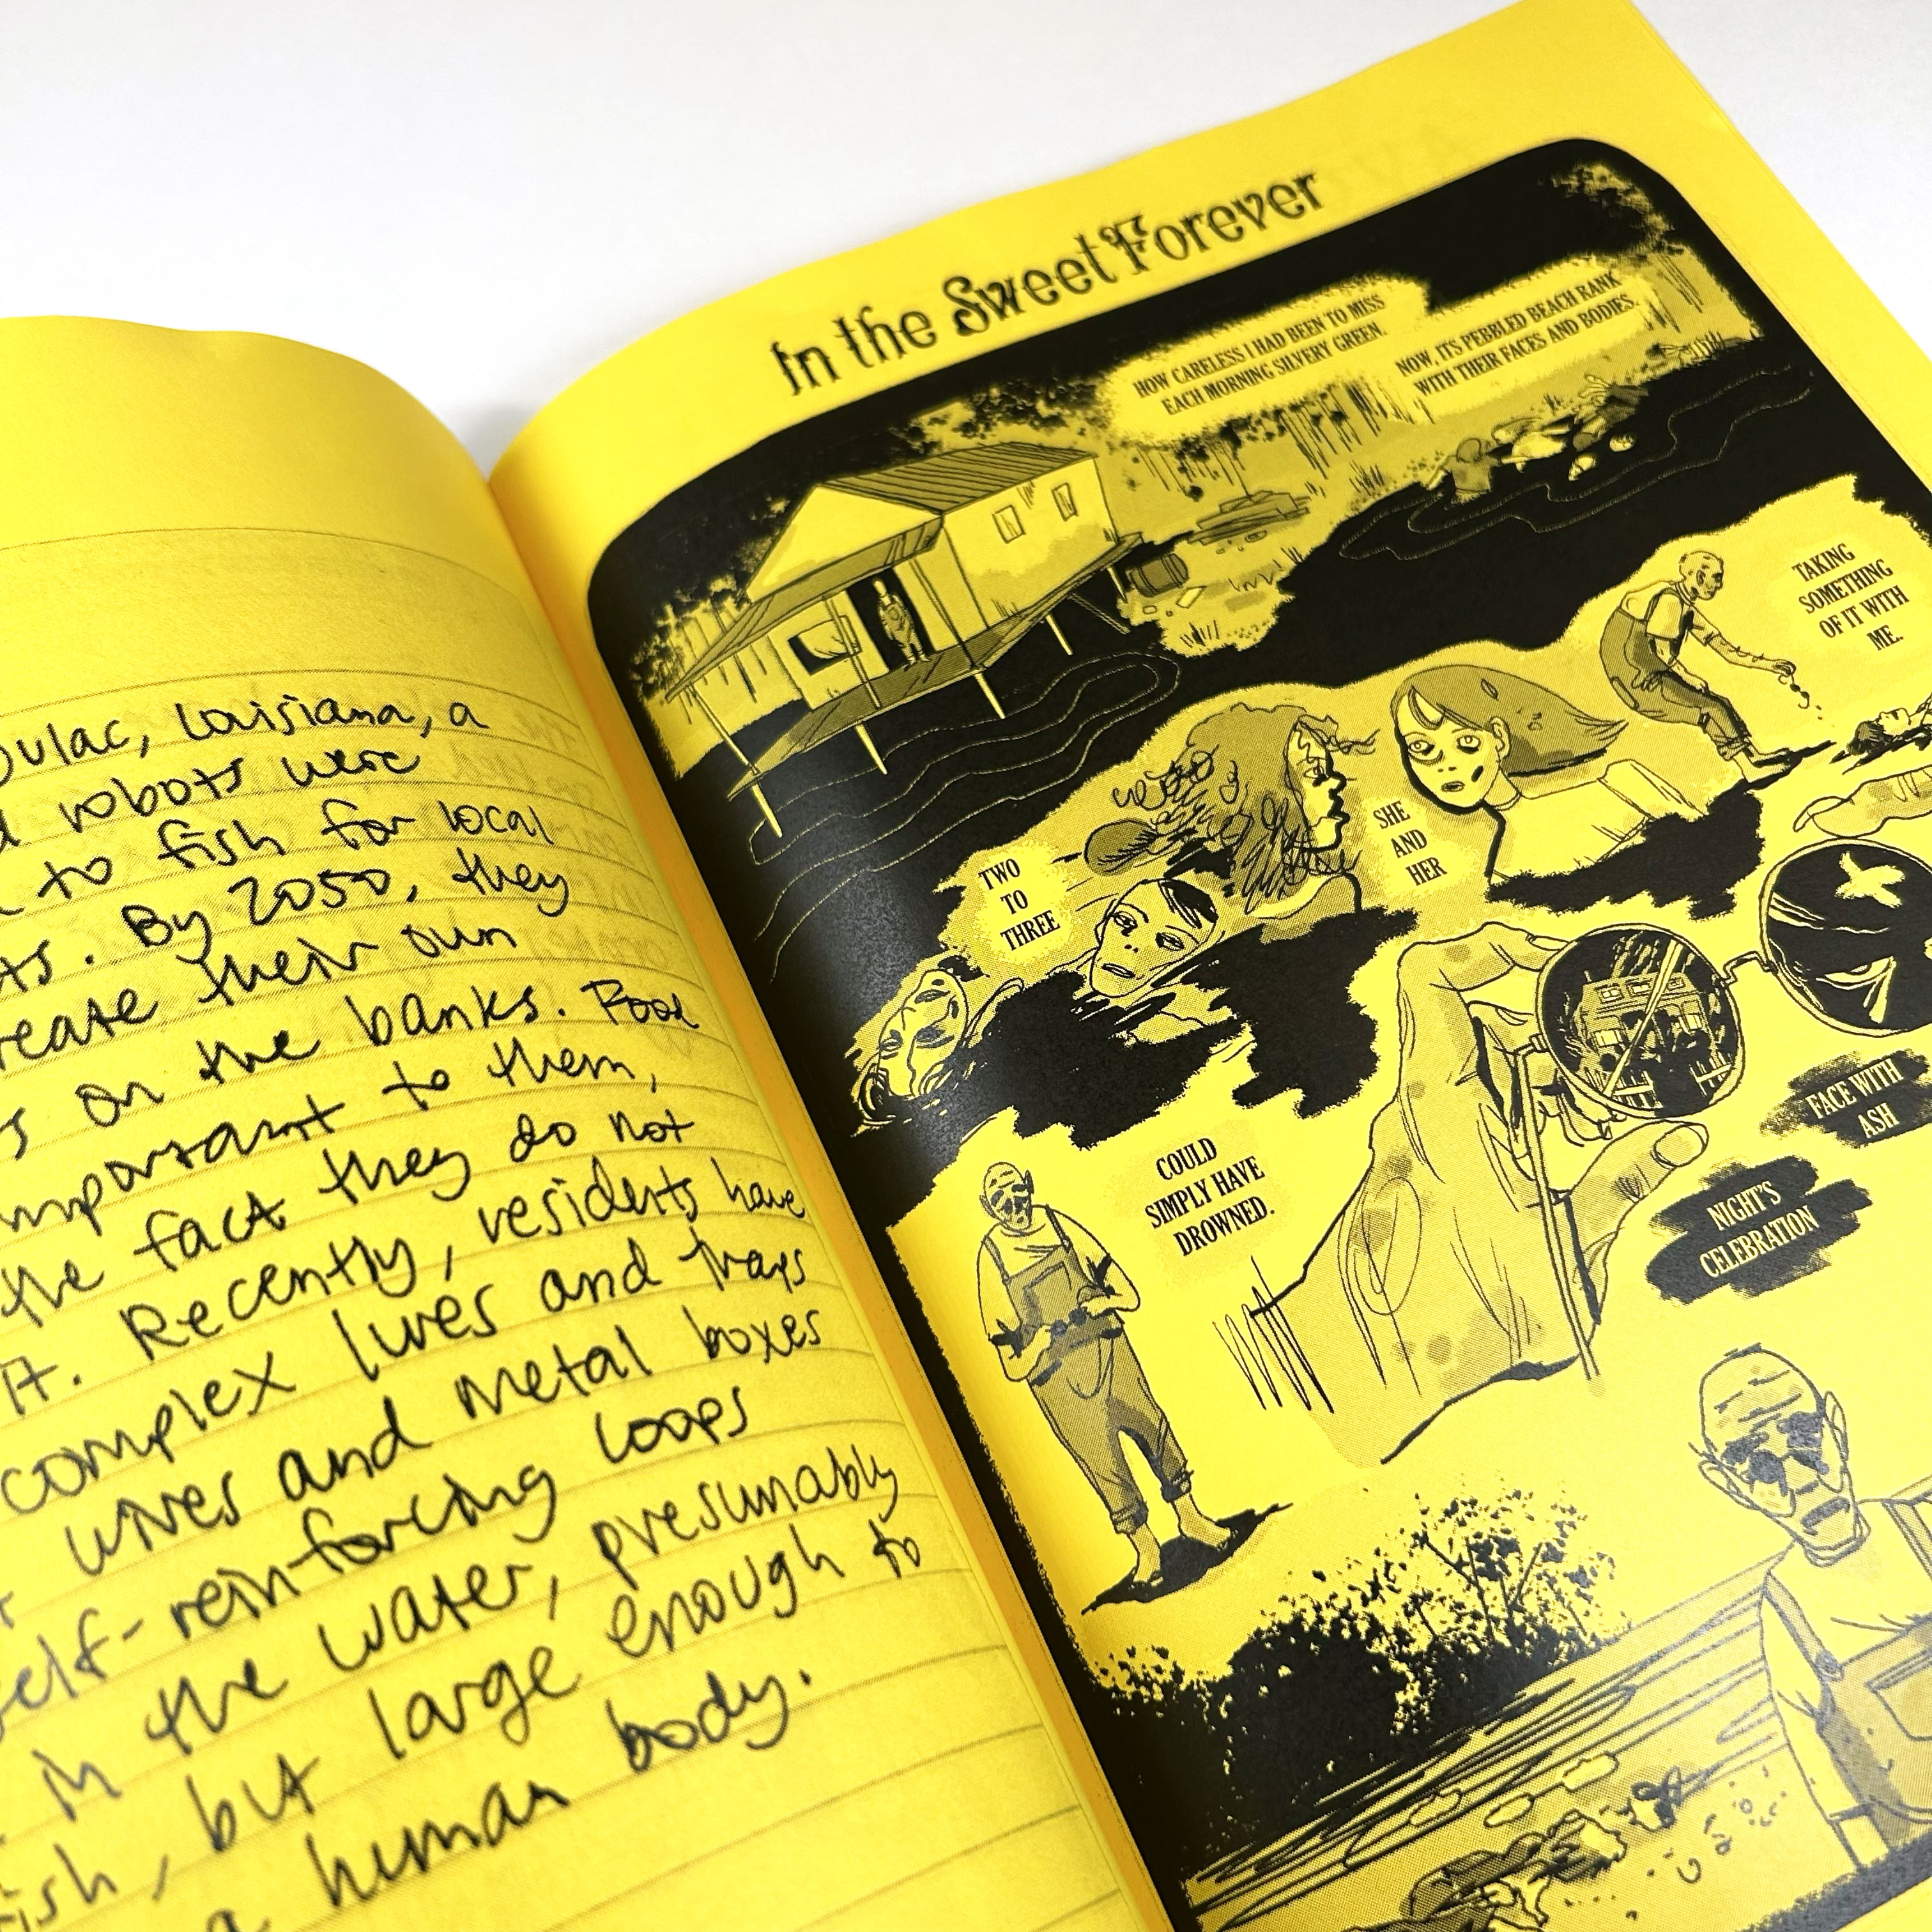 oulac, Louisiana, a
robots were
to fish for local
ts. By 2050, they
reate their own
s on the banks. Food
important to them,
the fact they do not
it. Recently, residents have
complex lures and traps
wires and metal boxes
self-reinforcing loops
in the water, presumably
fish, but large enough to
a human body.
In the Sweet Forever
HOW CARELESS I HAD BEEN TO MISS
EACH MORNING SILVERY GREEN.
NOW, ITS PEBBLED BEACH RANK
WITH THEIR FACES AND BODIES.
TAKING
SOMETHING
OF IT WITH
ME.
SHE
AND
HER
TWO
TO
THREE
FACE WITH
ASH
COULD
SIMPLY HAVE
DROWNED.
NIGHT'S
CELEBRATION